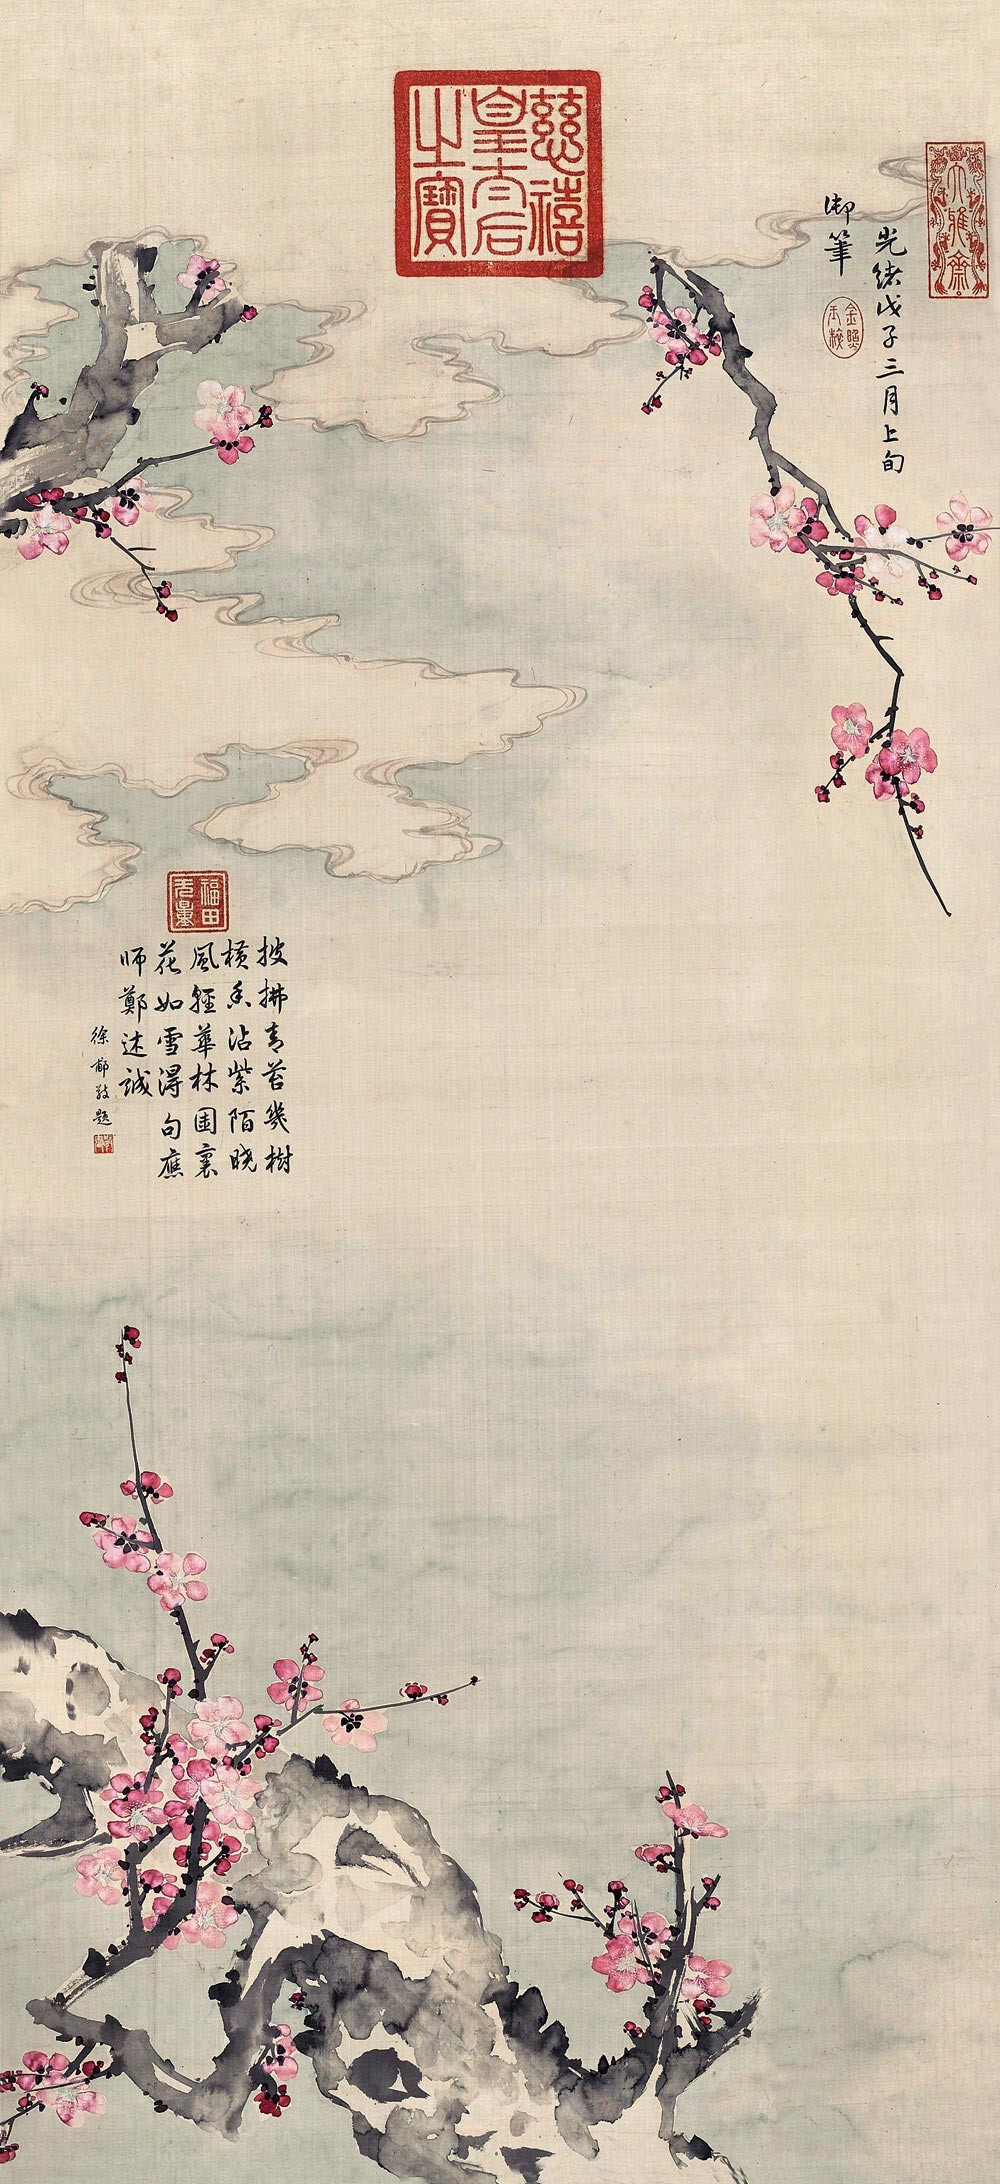 慈禧
皇太后
之寶
大雅齋
光緒戊子三月上旬
御筆
福田
无量
披拂青苔幾樹
橫香沾紫陌曉
風輕華林園裏
花如雪得句應
師鄭述誠
徐郙敬題